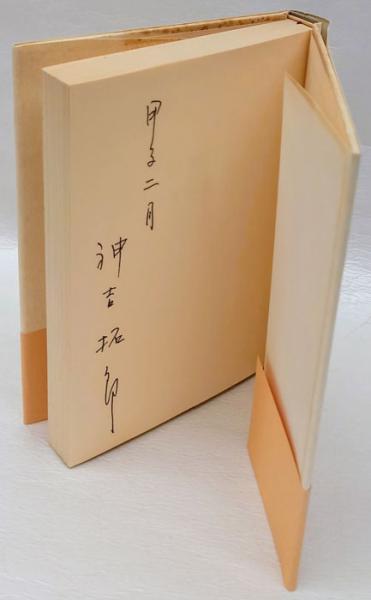 甲子二月
神吉拓郎